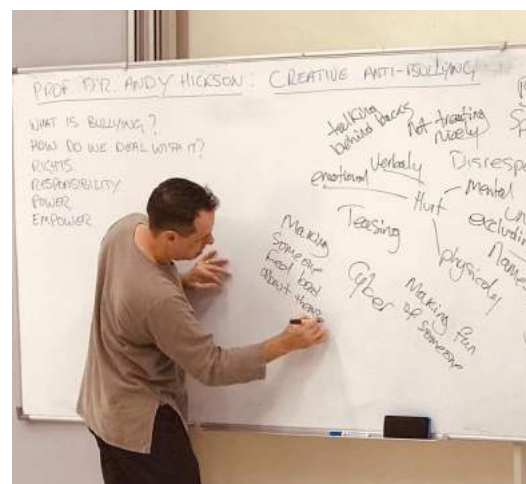 PROF DR. ANDY HICKSON : CREATIVE ANTI-BULLYING
WHAT IS BULLYING?
HOW DO WE DEAL WITH IT?
RIGHTS
RESPONSIBILITY
POWER
EMPOWER
talking
behind backs
not treating
nicely
Verbally
emotional
Hurt
Mental
excluding
Teasing
physically
Making
someone
feel bad
about
Cyber
Making fun
of someone